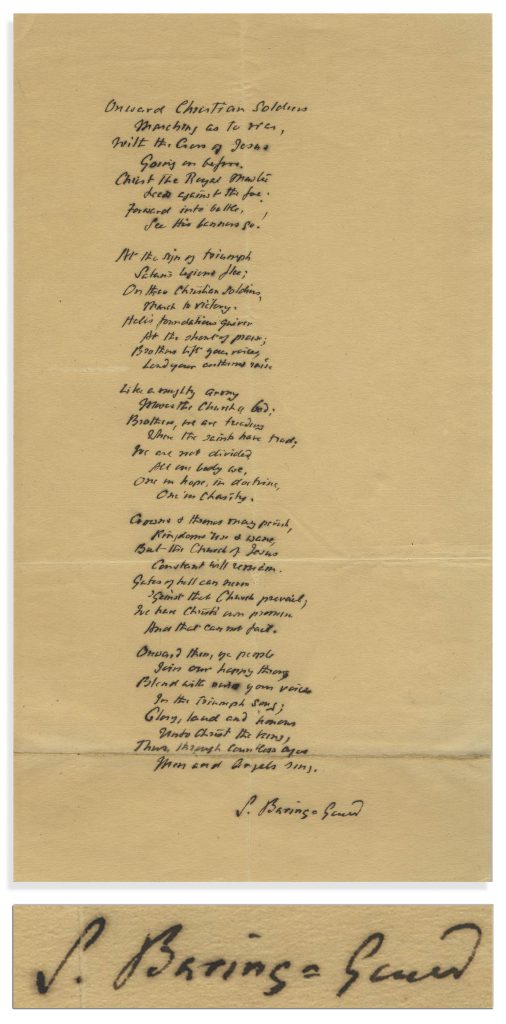 Onward Christian Soldiers
Marching as to war,
With the Cross of Jesus
Going on before.
Christ the Royal Master
Leads against the foe:
Forward into battle, !
See His banners go.
At the sign of triumph
Satan's legions flee;
On then Christian Soldiers,
March to victory.
Hell's foundations quiver
At the shout of praise;
Brothers lift your voices,
Loud your anthems raise
Like a mighty army
Moves the Church of God;
Brothers, we are treading
Where the saints have trod;
We are not divided
All one body we,
One in hope, in doctrine,
One in Charity.
Crowns & thrones may perish,
Kingdoms rise & wane,
But the Church of Jesus
Constant will remain.
Gates of hell can never
'Gainst that Church prevail;
We have Christ's own promise
And that cannot fail.
Onward then, ye people
Join our happy throng
Blend with your voices
In the triumph song;
Glory, laud and honour
Unto Christ the King,
This through countless ages
Men and Angels sing.
S. Baring=Gould
S. Baring=Gould